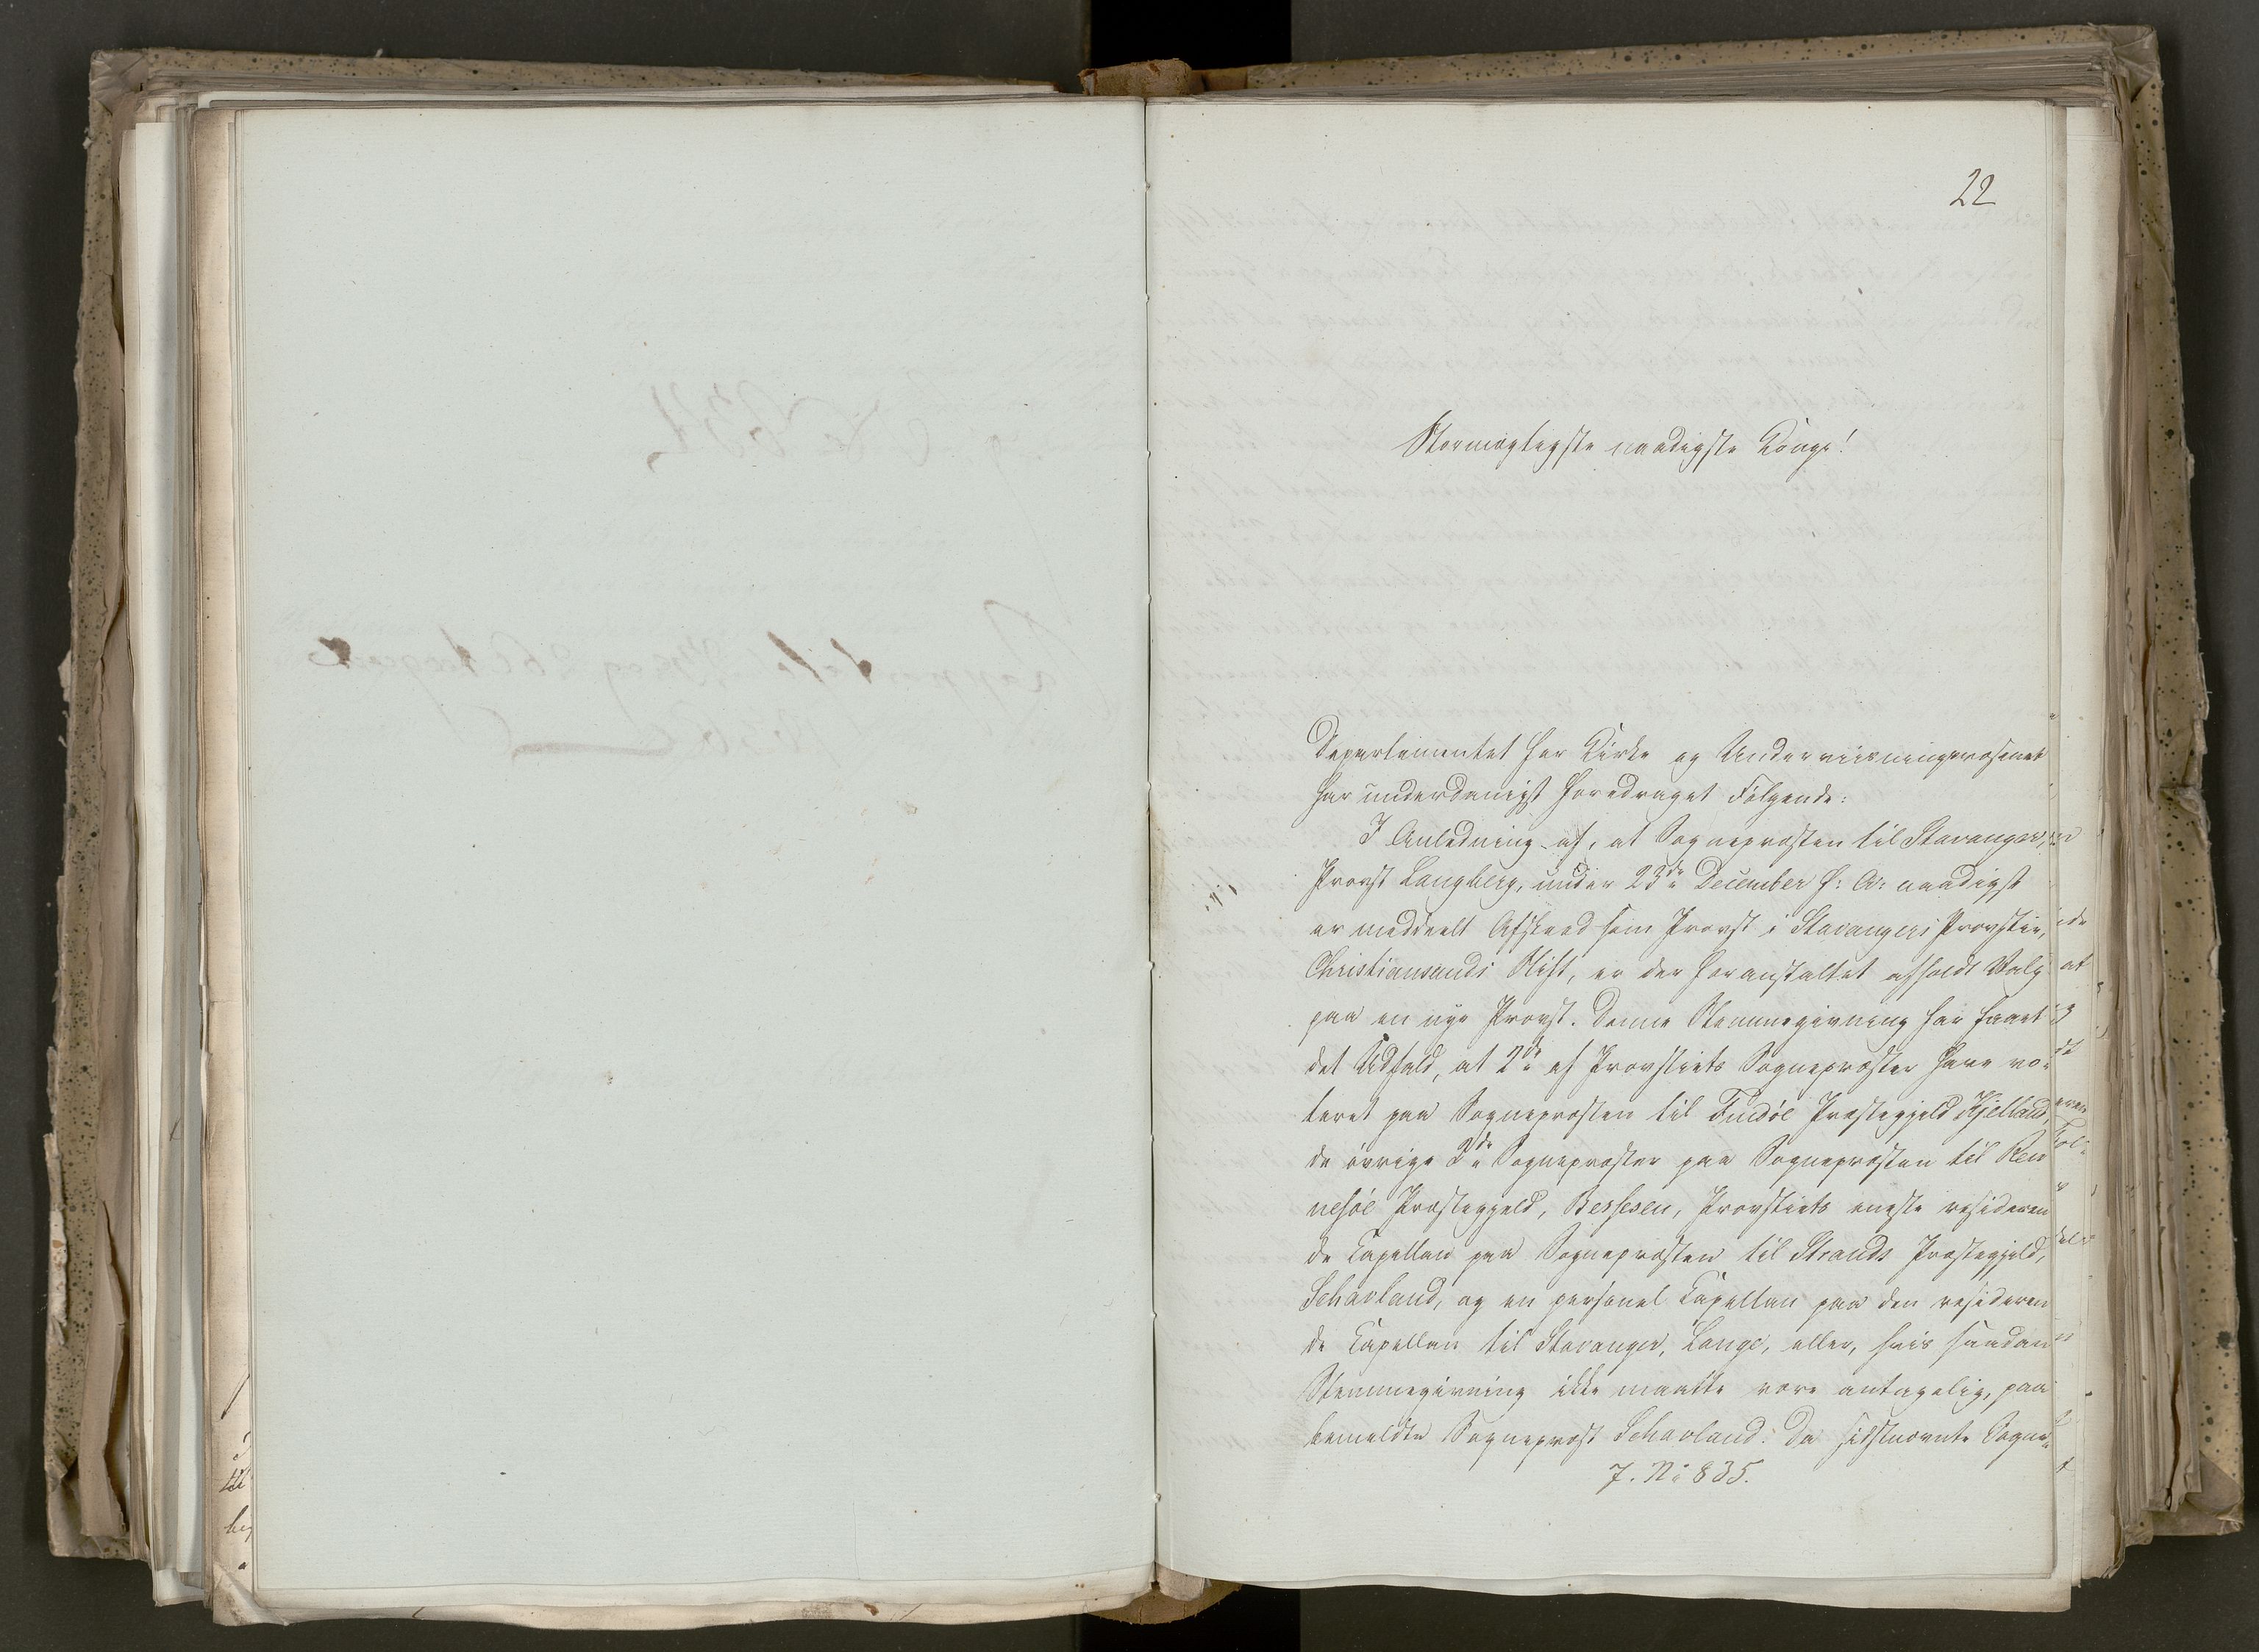 22
Stormægtigste naadigste Konge!
Departementet for Kirke og Underviisningsvæsenet
har underdanigst foredraget Følgende:
I Anledning af, at Sognepræsten til Stavanger,
Provst Langberg, under 23de December f: A: naadigst
er meddeelt Afskeed som Provst i Stavangers Provstie,
Christiansands Stift, er der foranstaltet afholdt Valg
paa en nye Provst. Denne Stemmegivning har faaet
det Udfald, at 2de af Provstiets Sognepræster have vo-
teret paa Sognepræsten til Findøe Præstegjeld Kjelland,
de øvrige 3de Sognepræster paa Sognepræsten til Ren
nesøe Præstegjeld, Bessesen, Provstiets eneste resideren
de Capellan paa Sognepræsten til Strands Præstegjeld,
Schavland, og en personel Capellan paa den resideren
de Capellan til Stavanger, Lange, eller, hvis saadan
Stemmegivning ikke maatte være antagelig, paa
bemeldte Sognepræst Schavland. Da sidstnævnte Sogne-
7. No 835.